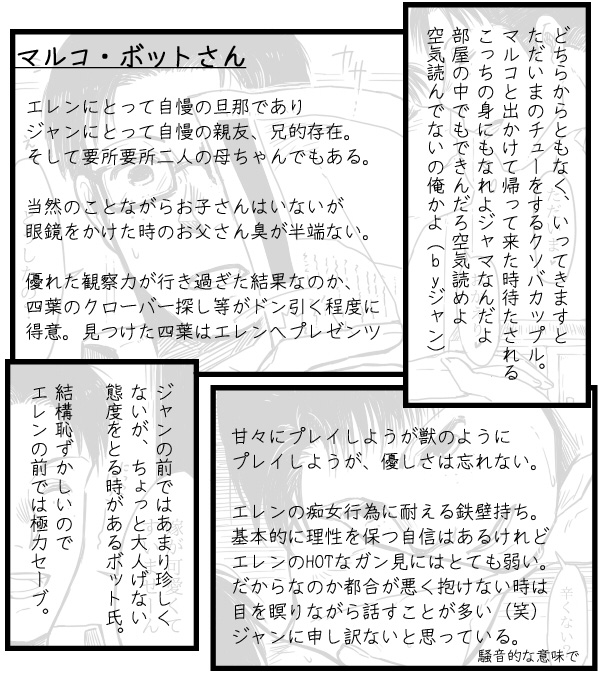 マルコ・ボットさん
エレンにとって自慢の旦那であり
ジャンにとって自慢の親友、兄的存在。
そして要所要所二人の母ちゃんでもある。
当然のことながらお子さんはいないが
眼鏡をかけた時のお父さん臭が半端ない。
優れた観察力が行き過ぎた結果なのか、
四葉のクローバー探し等がドン引く程度に
得意。見つけた四葉はエレンへプレゼンツ
どちらからともなく、いってきますと
ただいまのチューをするクソバカップル。
マルコと出かけて帰って来た時待たされる
こっちの身にもなれよジャマなんだよ
部屋の中でもできんだろ空気読めよ
空気読んでないの俺かよ（byジャン）
ジャンの前ではあまり珍しく
ないが、ちょっと大人げない
態度をとる時があるボット氏。
結構恥ずかしいので
エレンの前では極力セーブ。
甘々にプレイしようが獣のように
プレイしようが、優しさは忘れない。
エレンの痴女行為に耐える鉄壁持ち。
基本的に理性を保つ自信はあるけれど
エレンのHOTなガン見にはとても弱い。
だからなのか都合が悪く抱けない時は
目を瞑りながら話すことが多い（笑）
ジャンに申し訳ないと思っている。
騒音的な意味で